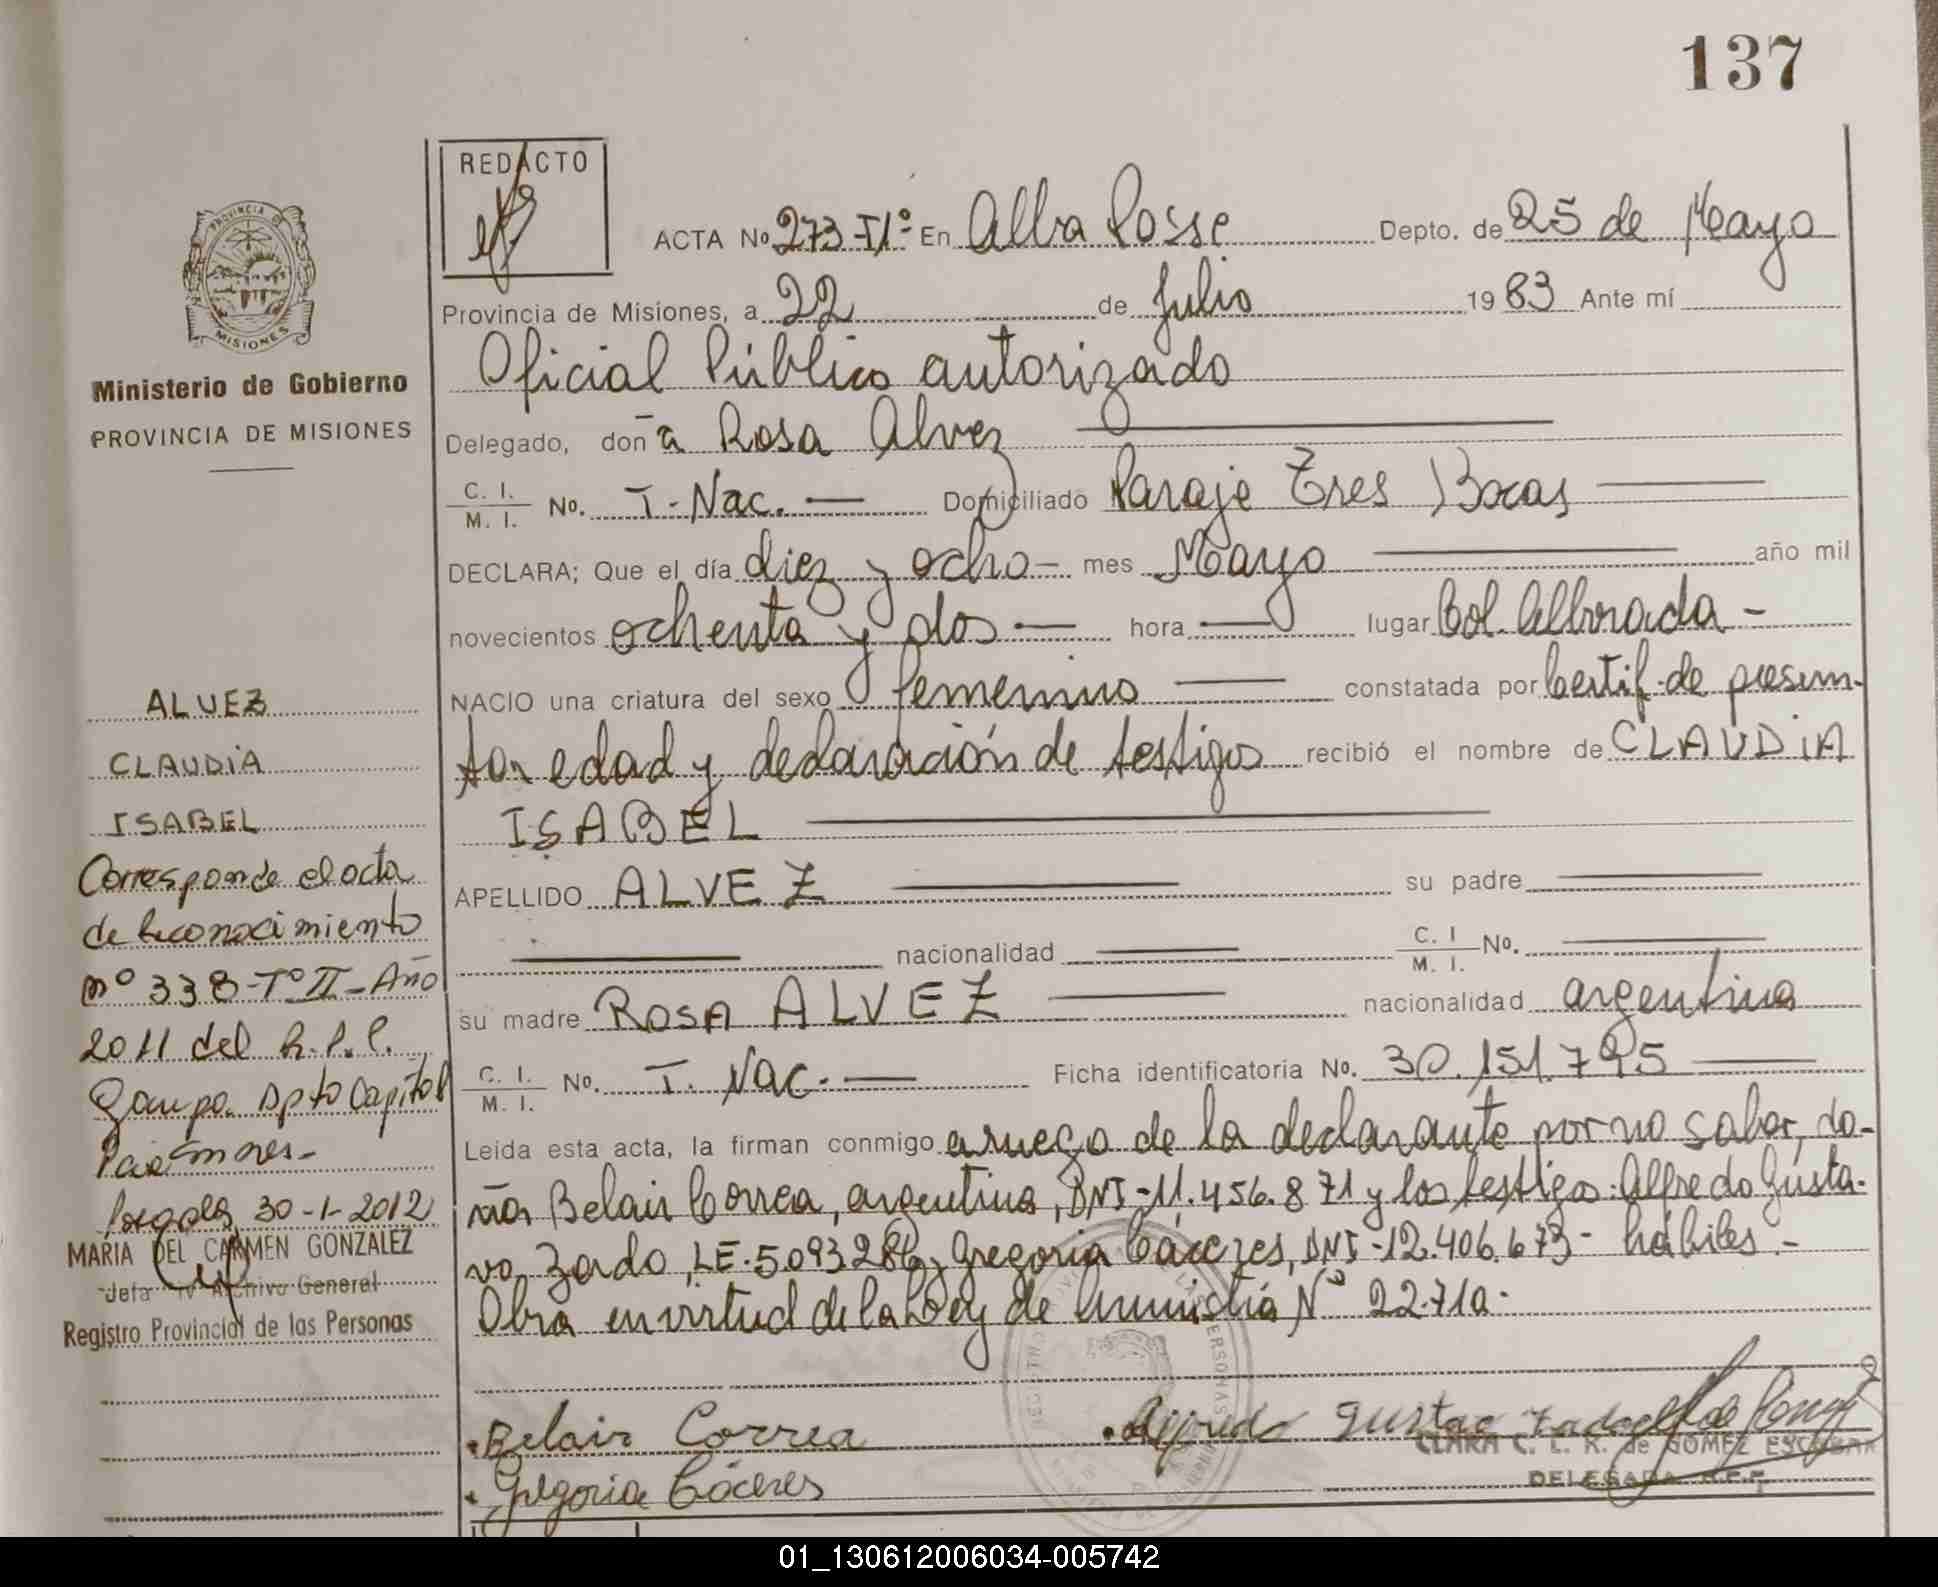 137
REDACTO
ACTA No 273-T1º En Alba Posse Depto. de 25 de Mayo
Provincia de Misiones, a 22 de Julio 1983 Ante mí
Oficial Público autorizado
Delegado, don ã Rosa Alvez
C. I. / M. I. No. T. Nac. — Domiciliado Paraje Tres Bocas
DECLARA; Que el día diez y ocho — mes Mayo año mil
novecientos ochenta y dos — hora — lugar Col. Alborada -
NACIO una criatura del sexo femenino — constatada por Certif. de presun-
ta edad y declaración de testigos recibió el nombre de CLAUDIA
ISABEL
APELLIDO ALVEZ su padre
nacionalidad C. I / M. I. No.
su madre ROSA ALVEZ nacionalidad argentina
C. I. / M. I. No. T. Nac. — Ficha identificatoria No. 30.151.795
Leida esta acta, la firman conmigo a ruego de la declarante por no saber, do-
ña Belair Correa, argentina, DNI-11.456.871 y los testigos: Alfredo Gusta-
vo Zardo, LE-5.093.286 y Gregoria Cáceres, DNI-12.406.673- hábiles.-
Obra en virtud de la Ley de Amnistía Nº 22.710.
Belair Correa
Alfredo Gustavo
Gregoria Cáceres
CLARA C. L. R. de GOMEZ ESCOBAR
DELEGADA
PROVINCIA DE
MISIONES
Ministerio de Gobierno
PROVINCIA DE MISIONES
ALVEZ
CLAUDIA
ISABEL
Corresponde el acta
de Reconocimiento
nº 338-Tº II-Año
2011 del R.P.P.
Garupá. Dpto Capital
Misiones-
Posadas, 30-1-2012
MARIA DEL CARMEN GONZALEZ
Jefa Archivo General
Registro Provincial de las Personas
01_130612006034-005742